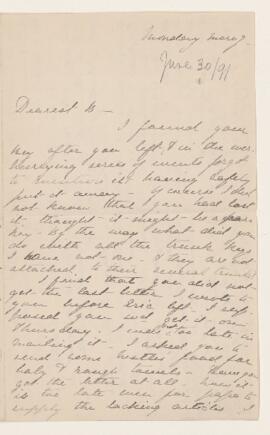 Monday morng.
June 30/91
Dearest B—
I found your
key after you left, & in the wor-
rying series of events forgot
to it having safely
put it away — of course I did
not know that you had lost
it — thought it might be a spare
key. By the way what did you
do with all the trunk keys
I have not one. & they are not
attached to their several trunks
I find that you did not
get the last letter I wrote to
you before we left. I sup-
posed you wd. get it on
Thursday. I was too late in
mailing it. I asked you to
send some food for
baby & rough towels — Have you
got the letter at all. Now it
is too late even for papa to
supply the lacking articles. I